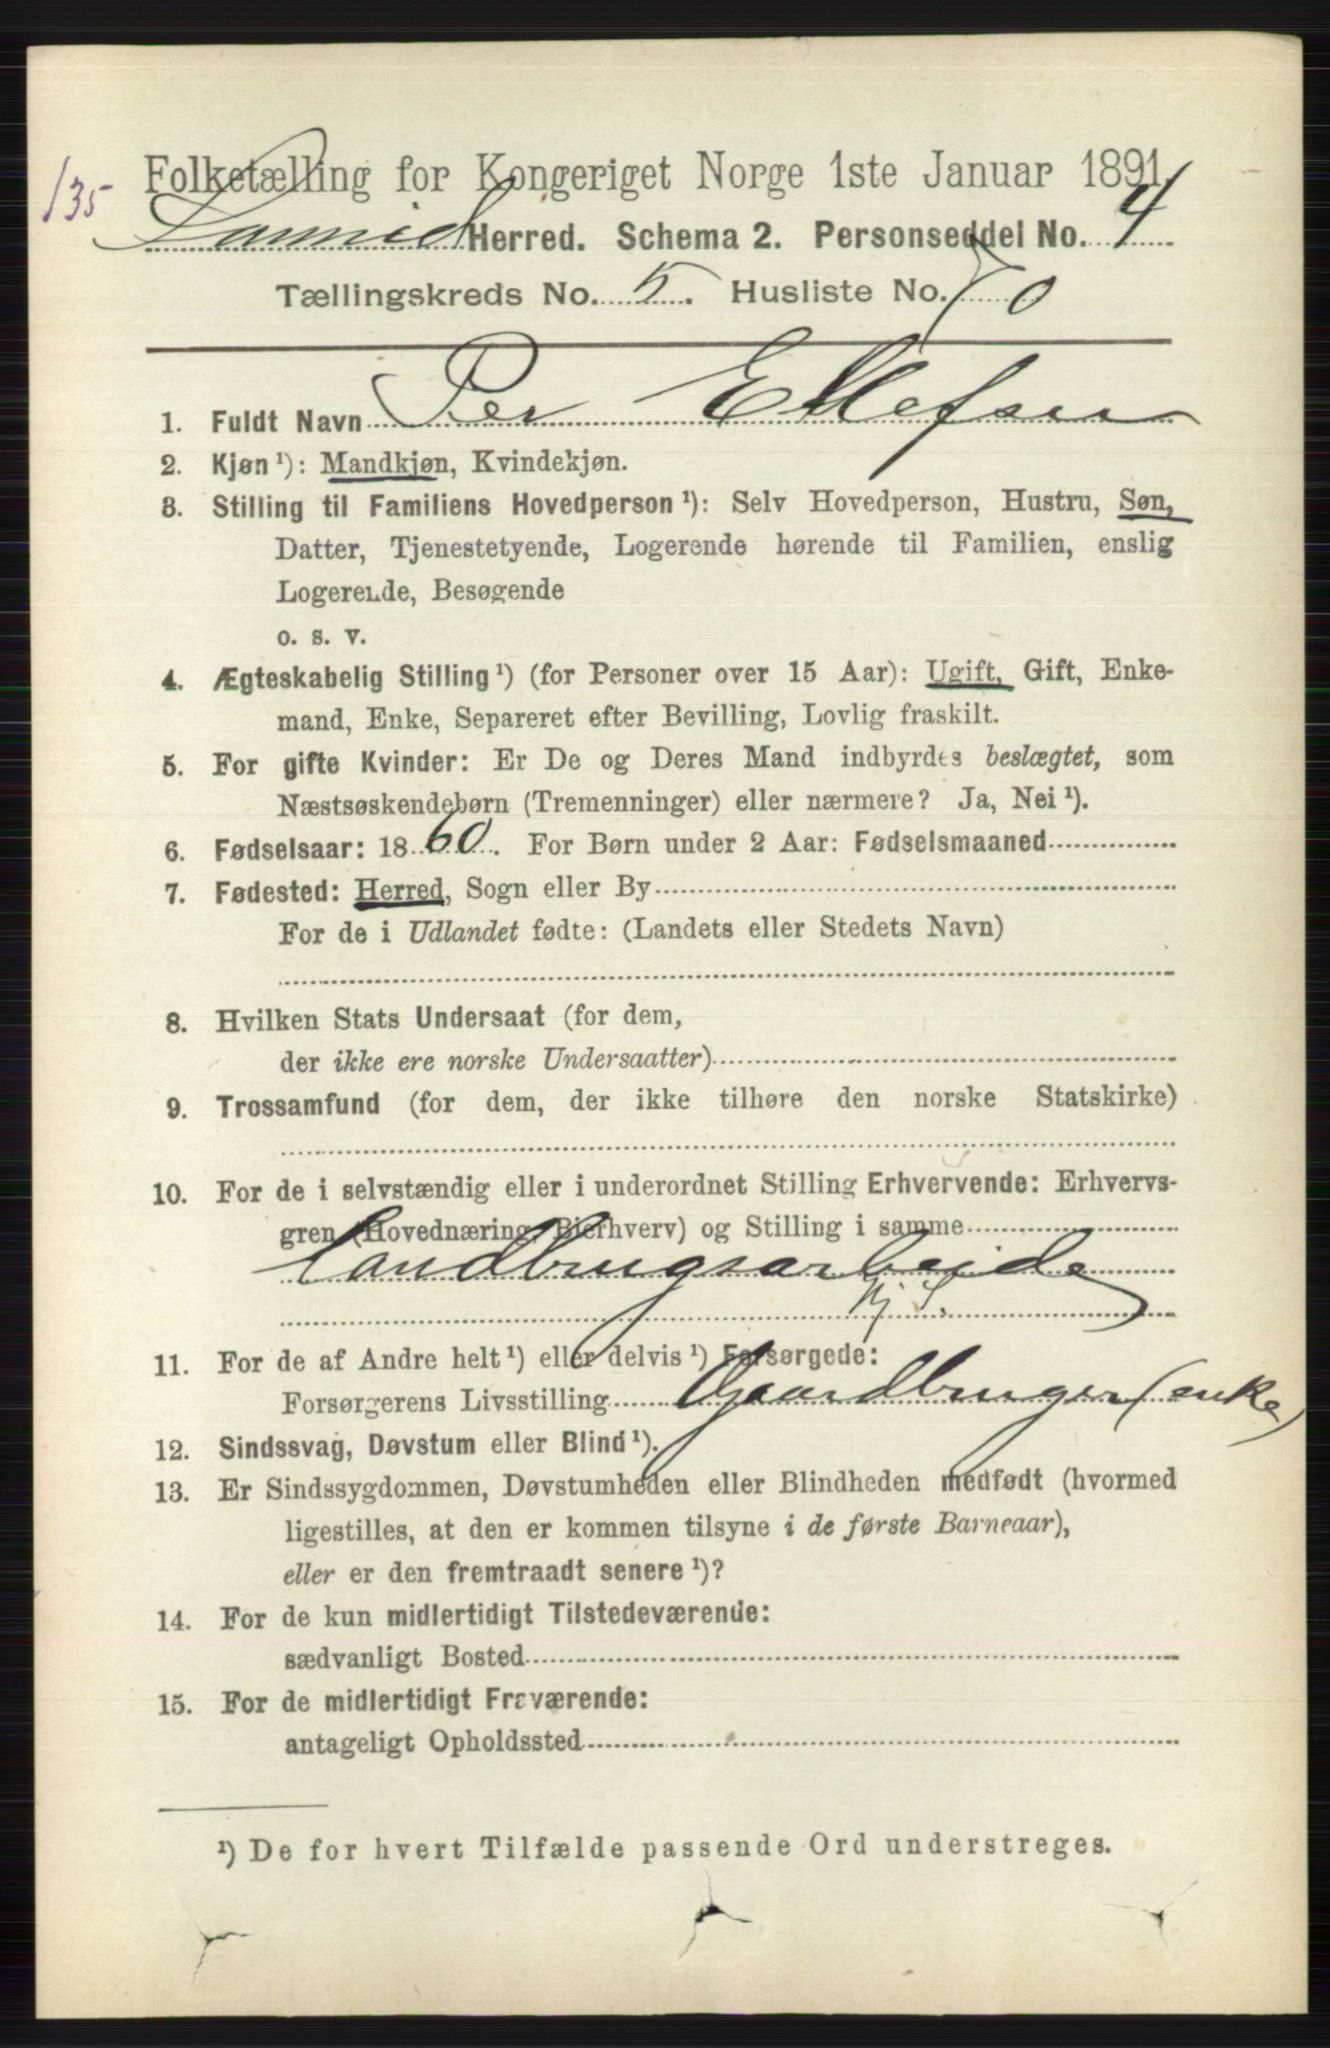 135
Folketælling for Kongeriget Norge 1ste Januar 1891.
Herred. Schema 2. Personseddel No. 4
Tællingskreds No. 5. Husliste No. 70
1. Fuldt Navn Per Ellefsen
2. Kjøn ¹): Mandkjøn, Kvindekjøn.
3. Stilling til Familiens Hovedperson ¹): Selv Hovedperson, Hustru, Søn,
Datter, Tjenestetyende, Logerende hørende til Familien, enslig
Logerende, Besøgende
o. s. v.
4. Ægteskabelig Stilling ¹) (for Personer over 15 Aar): Ugift, Gift, Enke-
mand, Enke, Separeret efter Bevilling, Lovlig fraskilt.
5. For gifte Kvinder: Er De og Deres Mand indbyrdes beslægtet, som
Næstsøskendebørn (Tremenninger) eller nærmere? Ja, Nei ¹).
6. Fødselsaar: 1860. For Børn under 2 Aar: Fødselsmaaned
7. Fødested: Herred, Sogn eller By
For de i Udlandet fødte: (Landets eller Stedets Navn)
8. Hvilken Stats Undersaat (for dem,
der ikke ere norske Undersaatter)
9. Trossamfund (for dem, der ikke tilhøre den norske Statskirke)
10. For de i selvstændig eller i underordnet Stilling Erhvervende: Erhvervs-
gren (Hovednæring, Bierhverv) og Stilling i samme
Landbrugsarbeide
11. For de af Andre helt ¹) eller delvis ¹) Forsørgede:
Forsørgerens Livsstilling Gaardbruger (enke)
12. Sindssvag, Døvstum eller Blind ¹).
13. Er Sindssygdommen, Døvstumheden eller Blindheden medfødt (hvormed
ligestilles, at den er kommen tilsyne i de første Barneaar),
eller er den fremtraadt senere ¹)?
14. For de kun midlertidigt Tilstedeværende:
sædvanligt Bosted
15. For de midlertidigt Fraværende:
antageligt Opholdssted
¹) De for hvert Tilfælde passende Ord understreges.